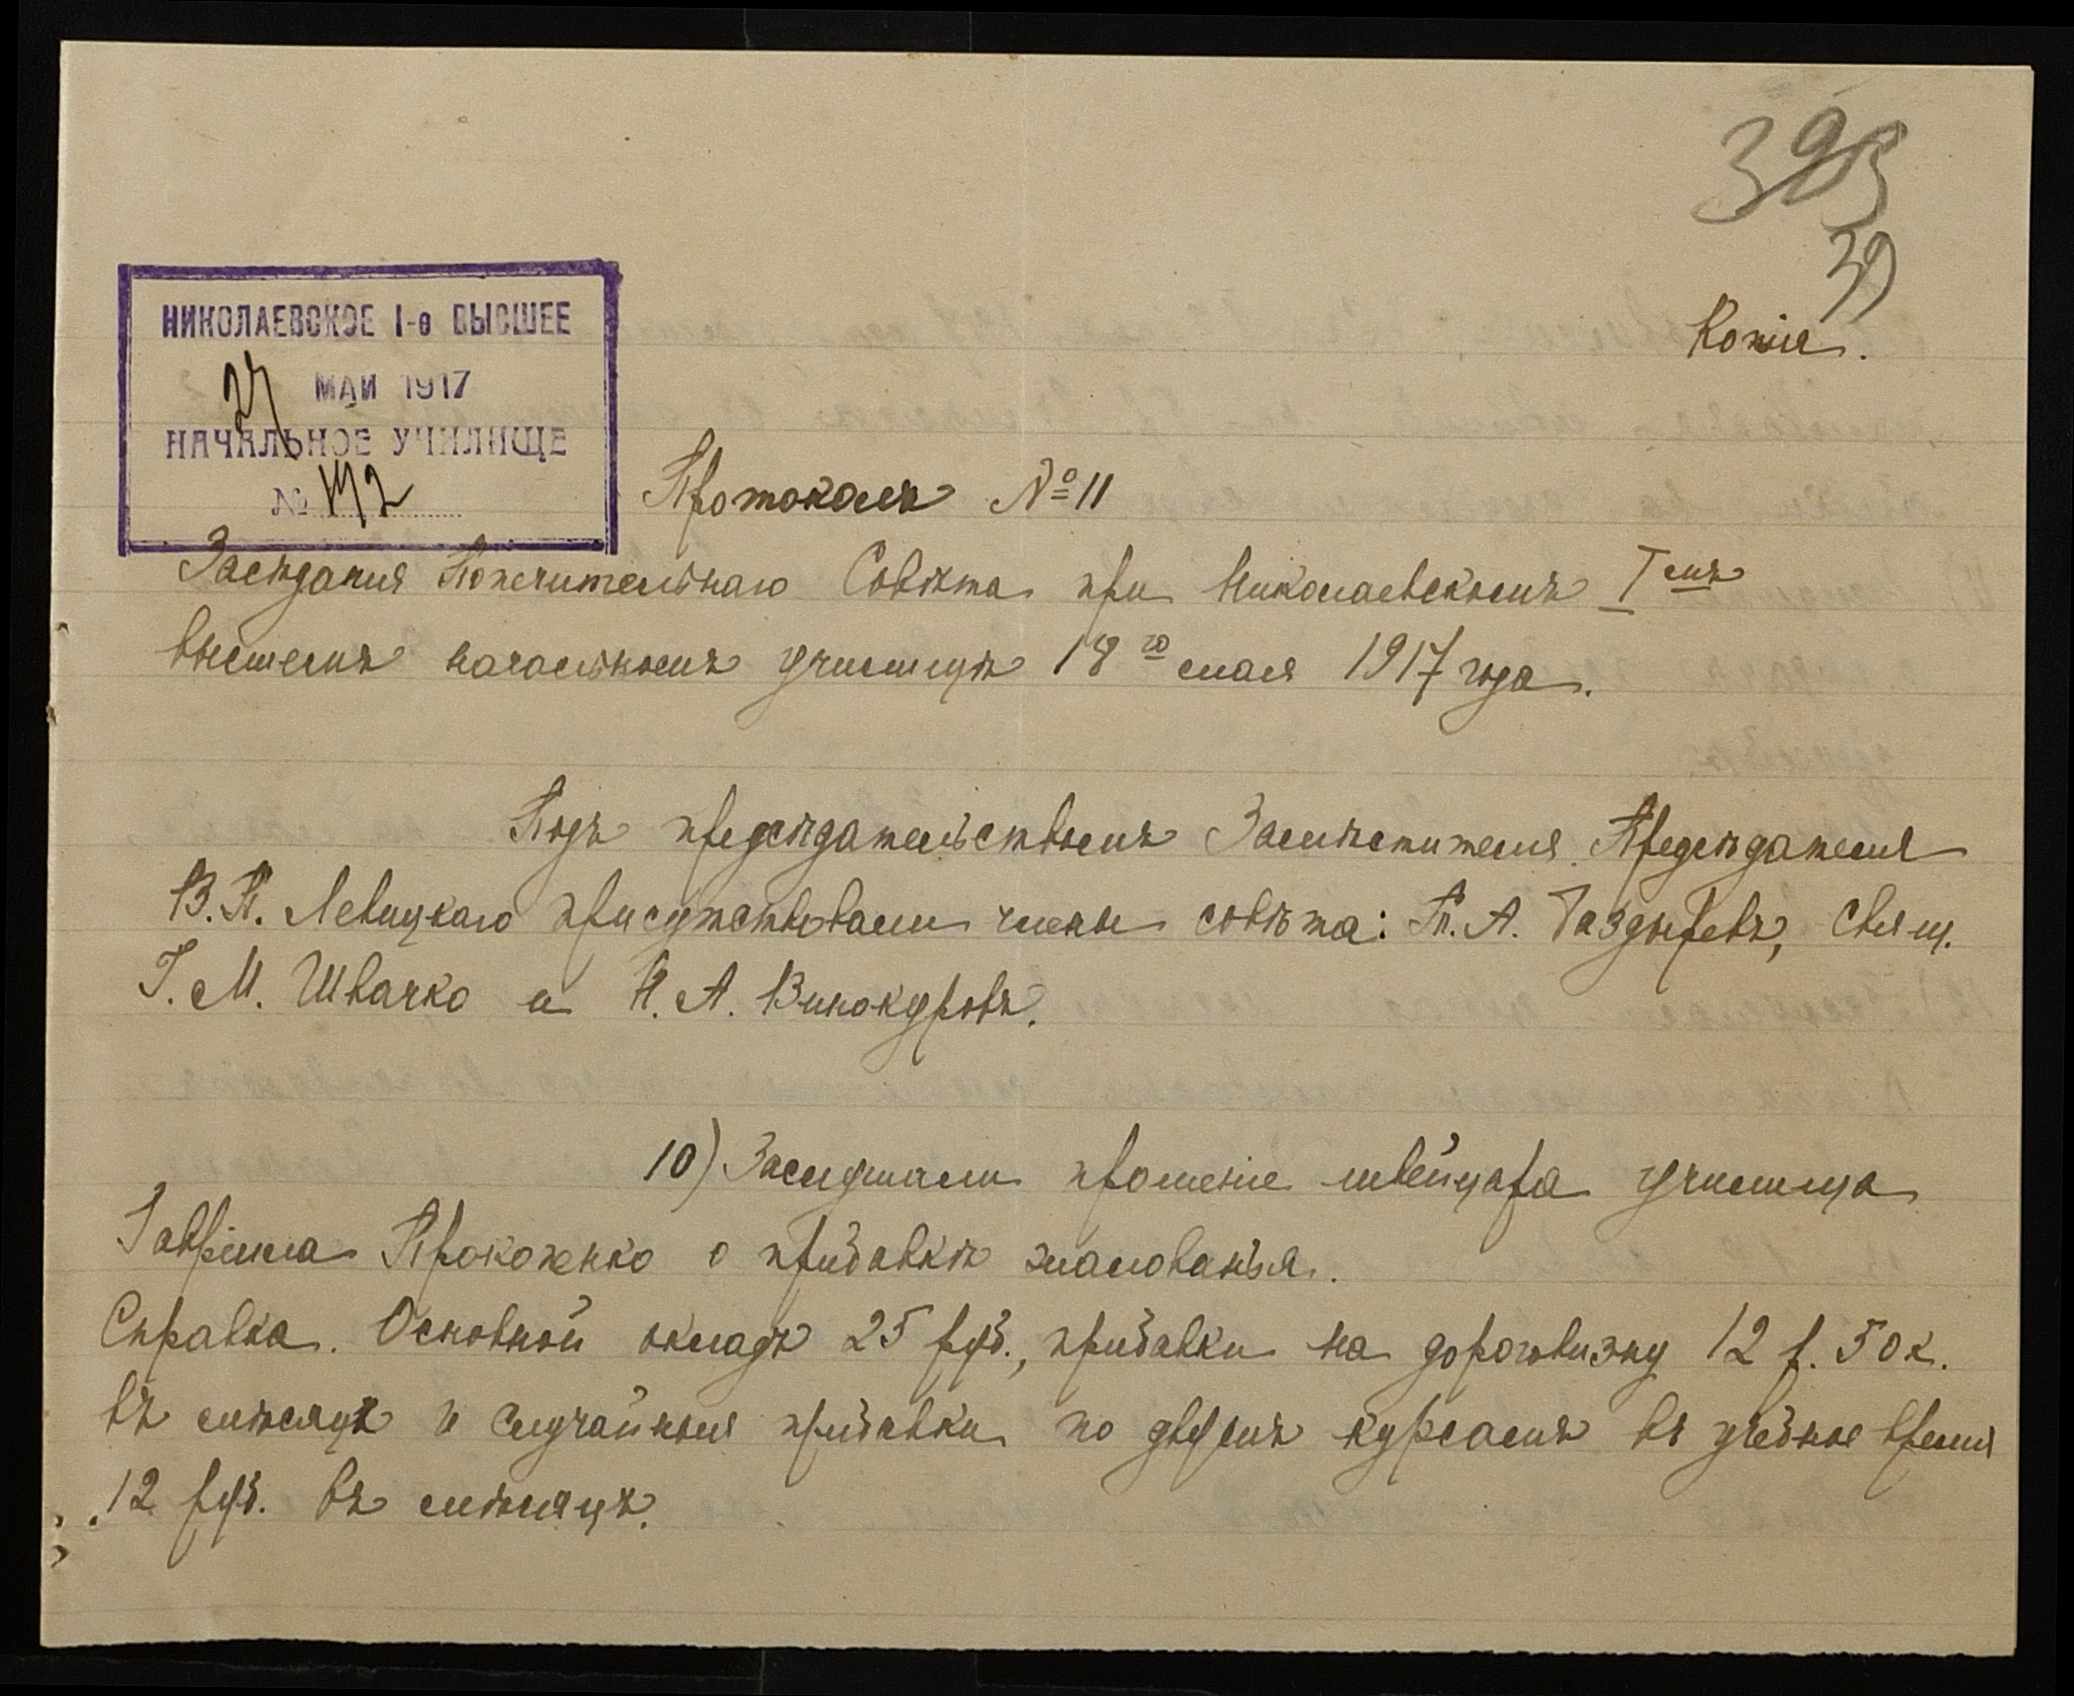 39
Копія.
НИКОЛАЕВСКОЕ 1-е ВЫСШЕЕ
27 МАЙ 1917
НАЧАЛЬНОЕ УЧИЛИЩЕ
№ 192
Протоколъ № 11
Засѣданія Попечительнаго Совѣта при Николаевскомъ I омъ
высшемъ начальномъ училищѣ 18 го мая 1917 года.
Подъ предсѣдательствомъ Замѣстителя Предсѣдателя
В. П. Левицкаго присутствовали члены совѣта: П. А. Раздыревъ, свящ.
Г. М. Швачко и Н. А. Винокуровъ.
10) Заслушали прошеніе швейцара училища
Гавріила Прокоженко о прибавкѣ жалованья.
Справка. Основной окладъ 25 руб., прибавки на дороговизну 12 р. 50 к.
въ мѣсяцъ и случайныя прибавки по двумъ курсамъ въ учебное время
12 руб. въ мѣсяцъ.